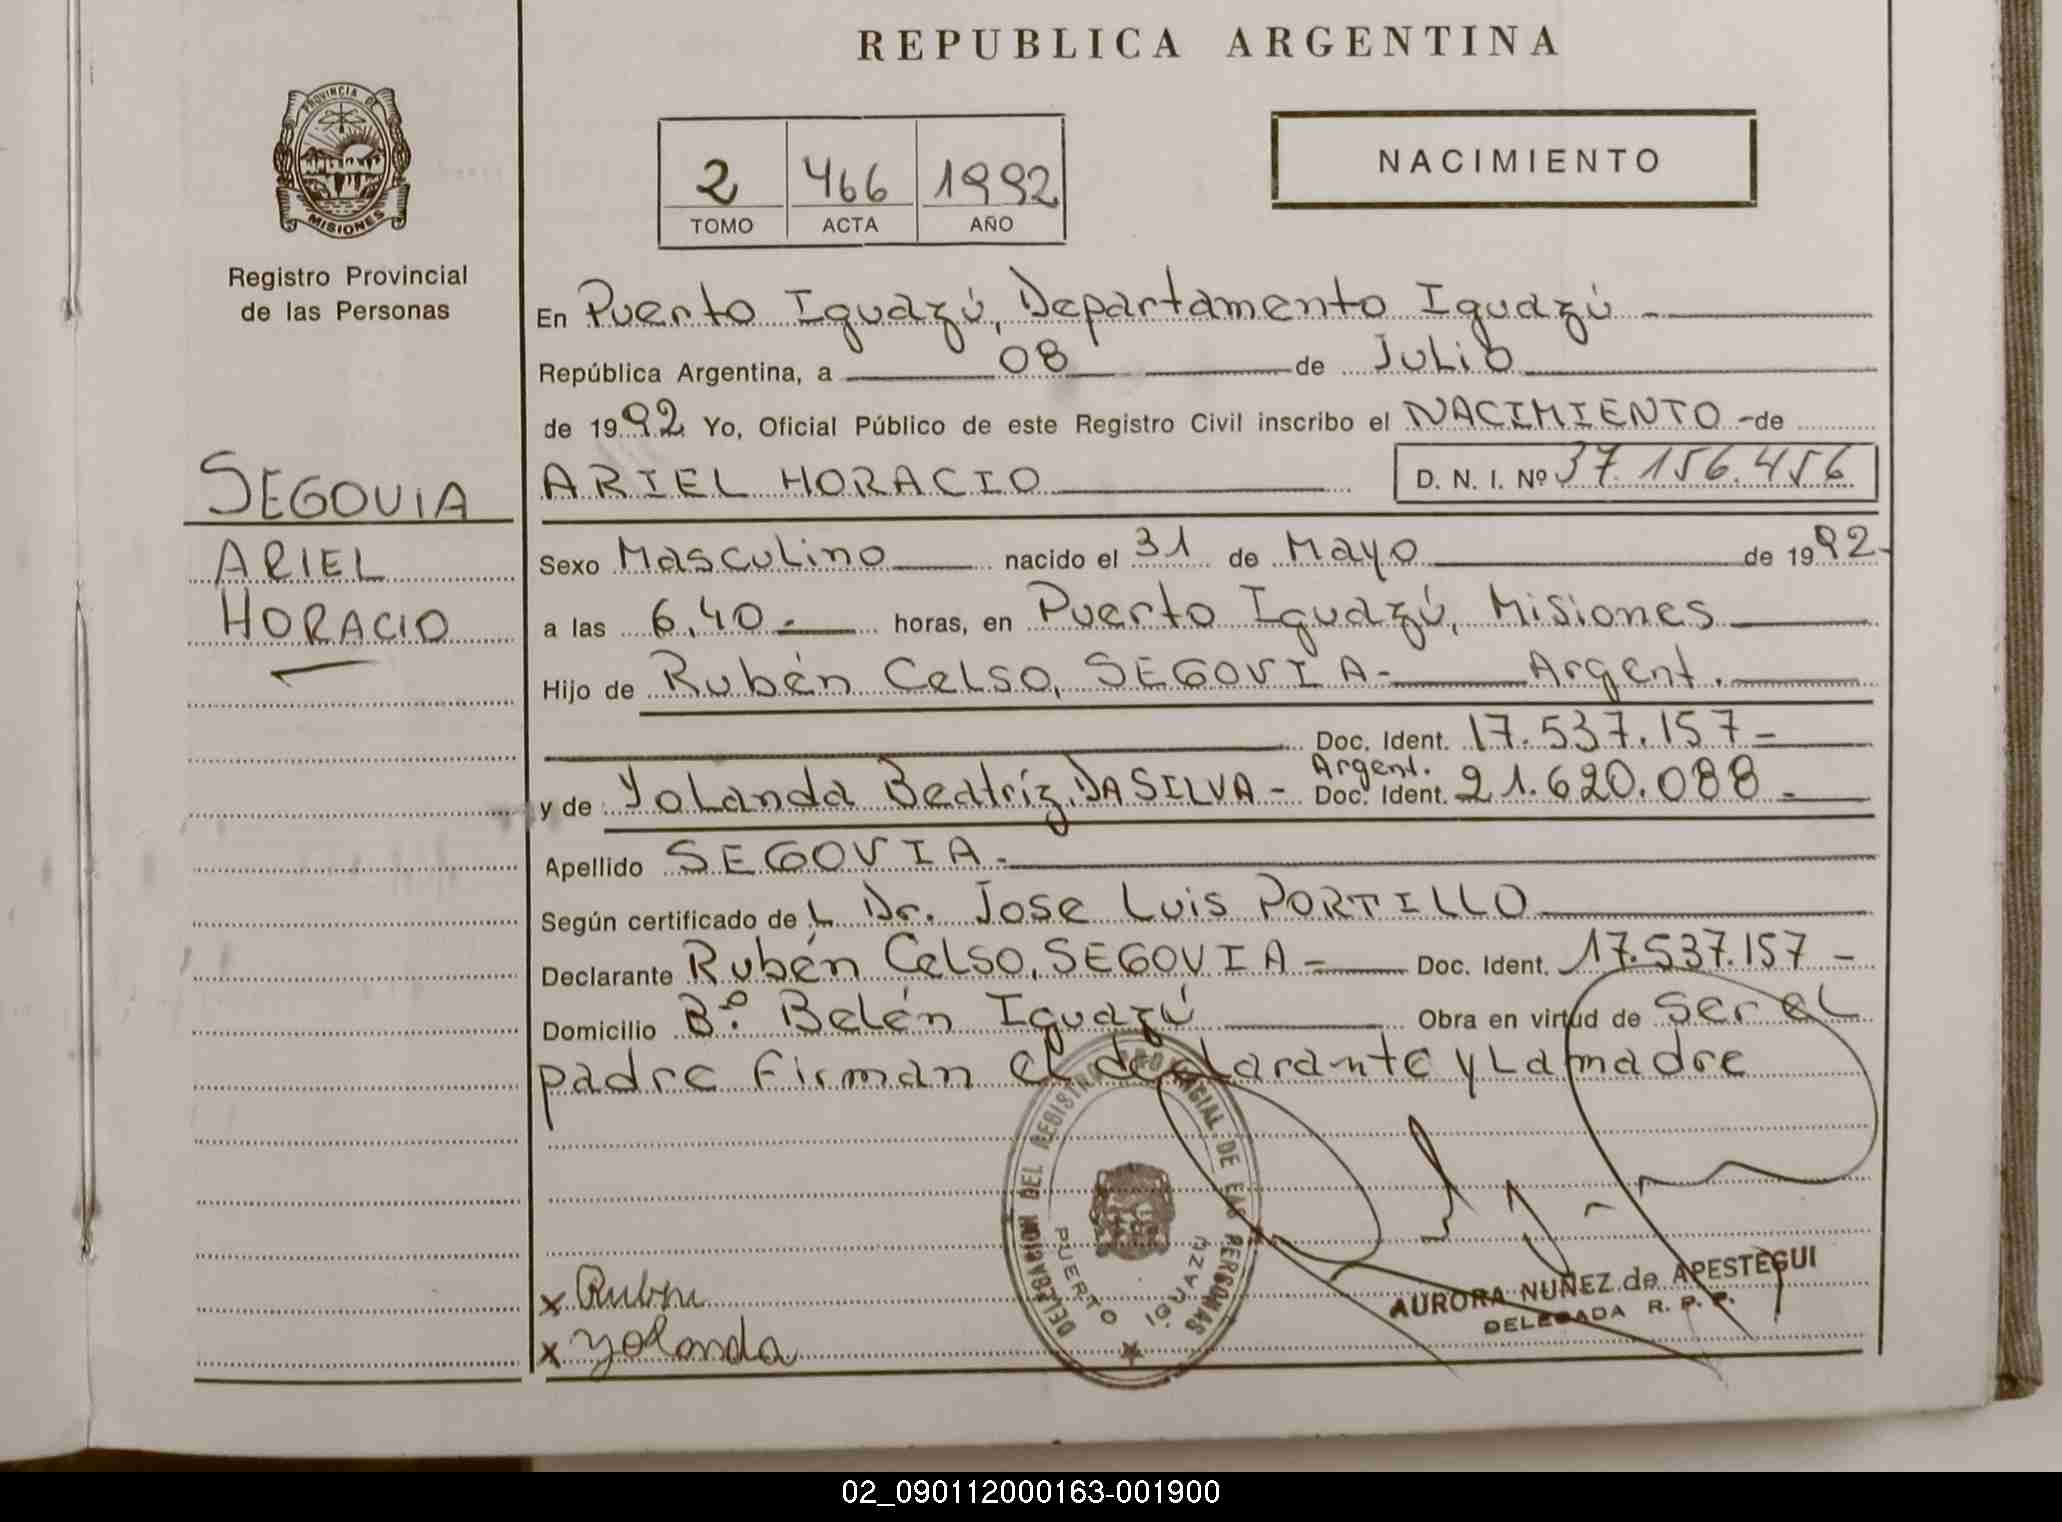 REPUBLICA ARGENTINA
PROVINCIA DE
MISIONES
Registro Provincial
de las Personas
2 466 1992
TOMO ACTA AÑO
NACIMIENTO
En Puerto Iguazú, Departamento Iguazú -
República Argentina, a 08 de Julio
de 1992 Yo, Oficial Público de este Registro Civil inscribo el NACIMIENTO - de
ARIEL HORACIO D. N. I. Nº 37.156.456
SEGOVIA
ARIEL
HORACIO
Sexo Masculino nacido el 31 de Mayo de 1992-
a las 6,40.- horas, en Puerto Iguazú, Misiones
Hijo de Rubén Celso, SEGOVIA- Argent.
Doc. Ident. 17.537.157-
Argent.
y de Yolanda Beatríz, DA SILVA- Doc. Ident. 21.620.088.-
Apellido SEGOVIA.
Según certificado de L Dr. Jose Luis PORTILLO
Declarante Rubén Celso, SEGOVIA- Doc. Ident. 17.537.157-
Domicilio Bº. Belén Iguazú Obra en virtud de ser el
padre Firman el declarante y La madre
DELEGACION DEL REGISTRO PROVINCIAL DE LAS PERSONAS
PUERTO IGUAZU
AURORA NUÑEZ de APESTEGUI
DELEGADA R. P. P.
x Ruben
x Yolanda
02_090112000163-001900